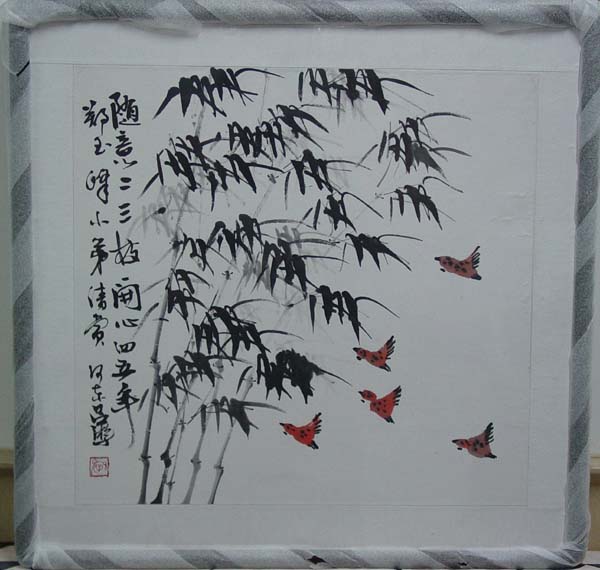 随意二三枝開心四五年
郑玉峰小弟清赏